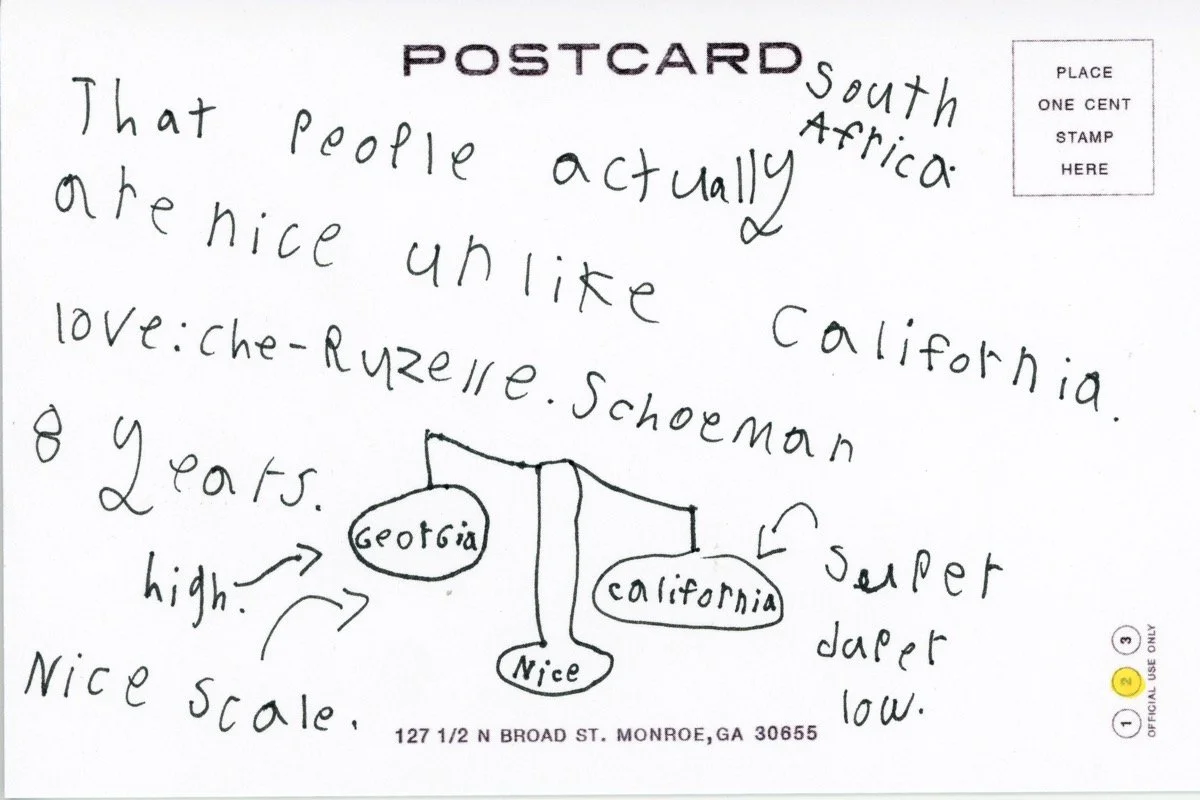 POSTCARD
PLACE
ONE CENT
STAMP
HERE
South
Africa.
That people actually
are nice unlike California.
love: Che-Ryzelle. Schoeman
8 Years.
Georgia
California
Nice
high.
Nice scale.
Super
duper
low.
127 1/2 N BROAD ST. MONROE, GA 30655
1 2 3
OFFICIAL USE ONLY